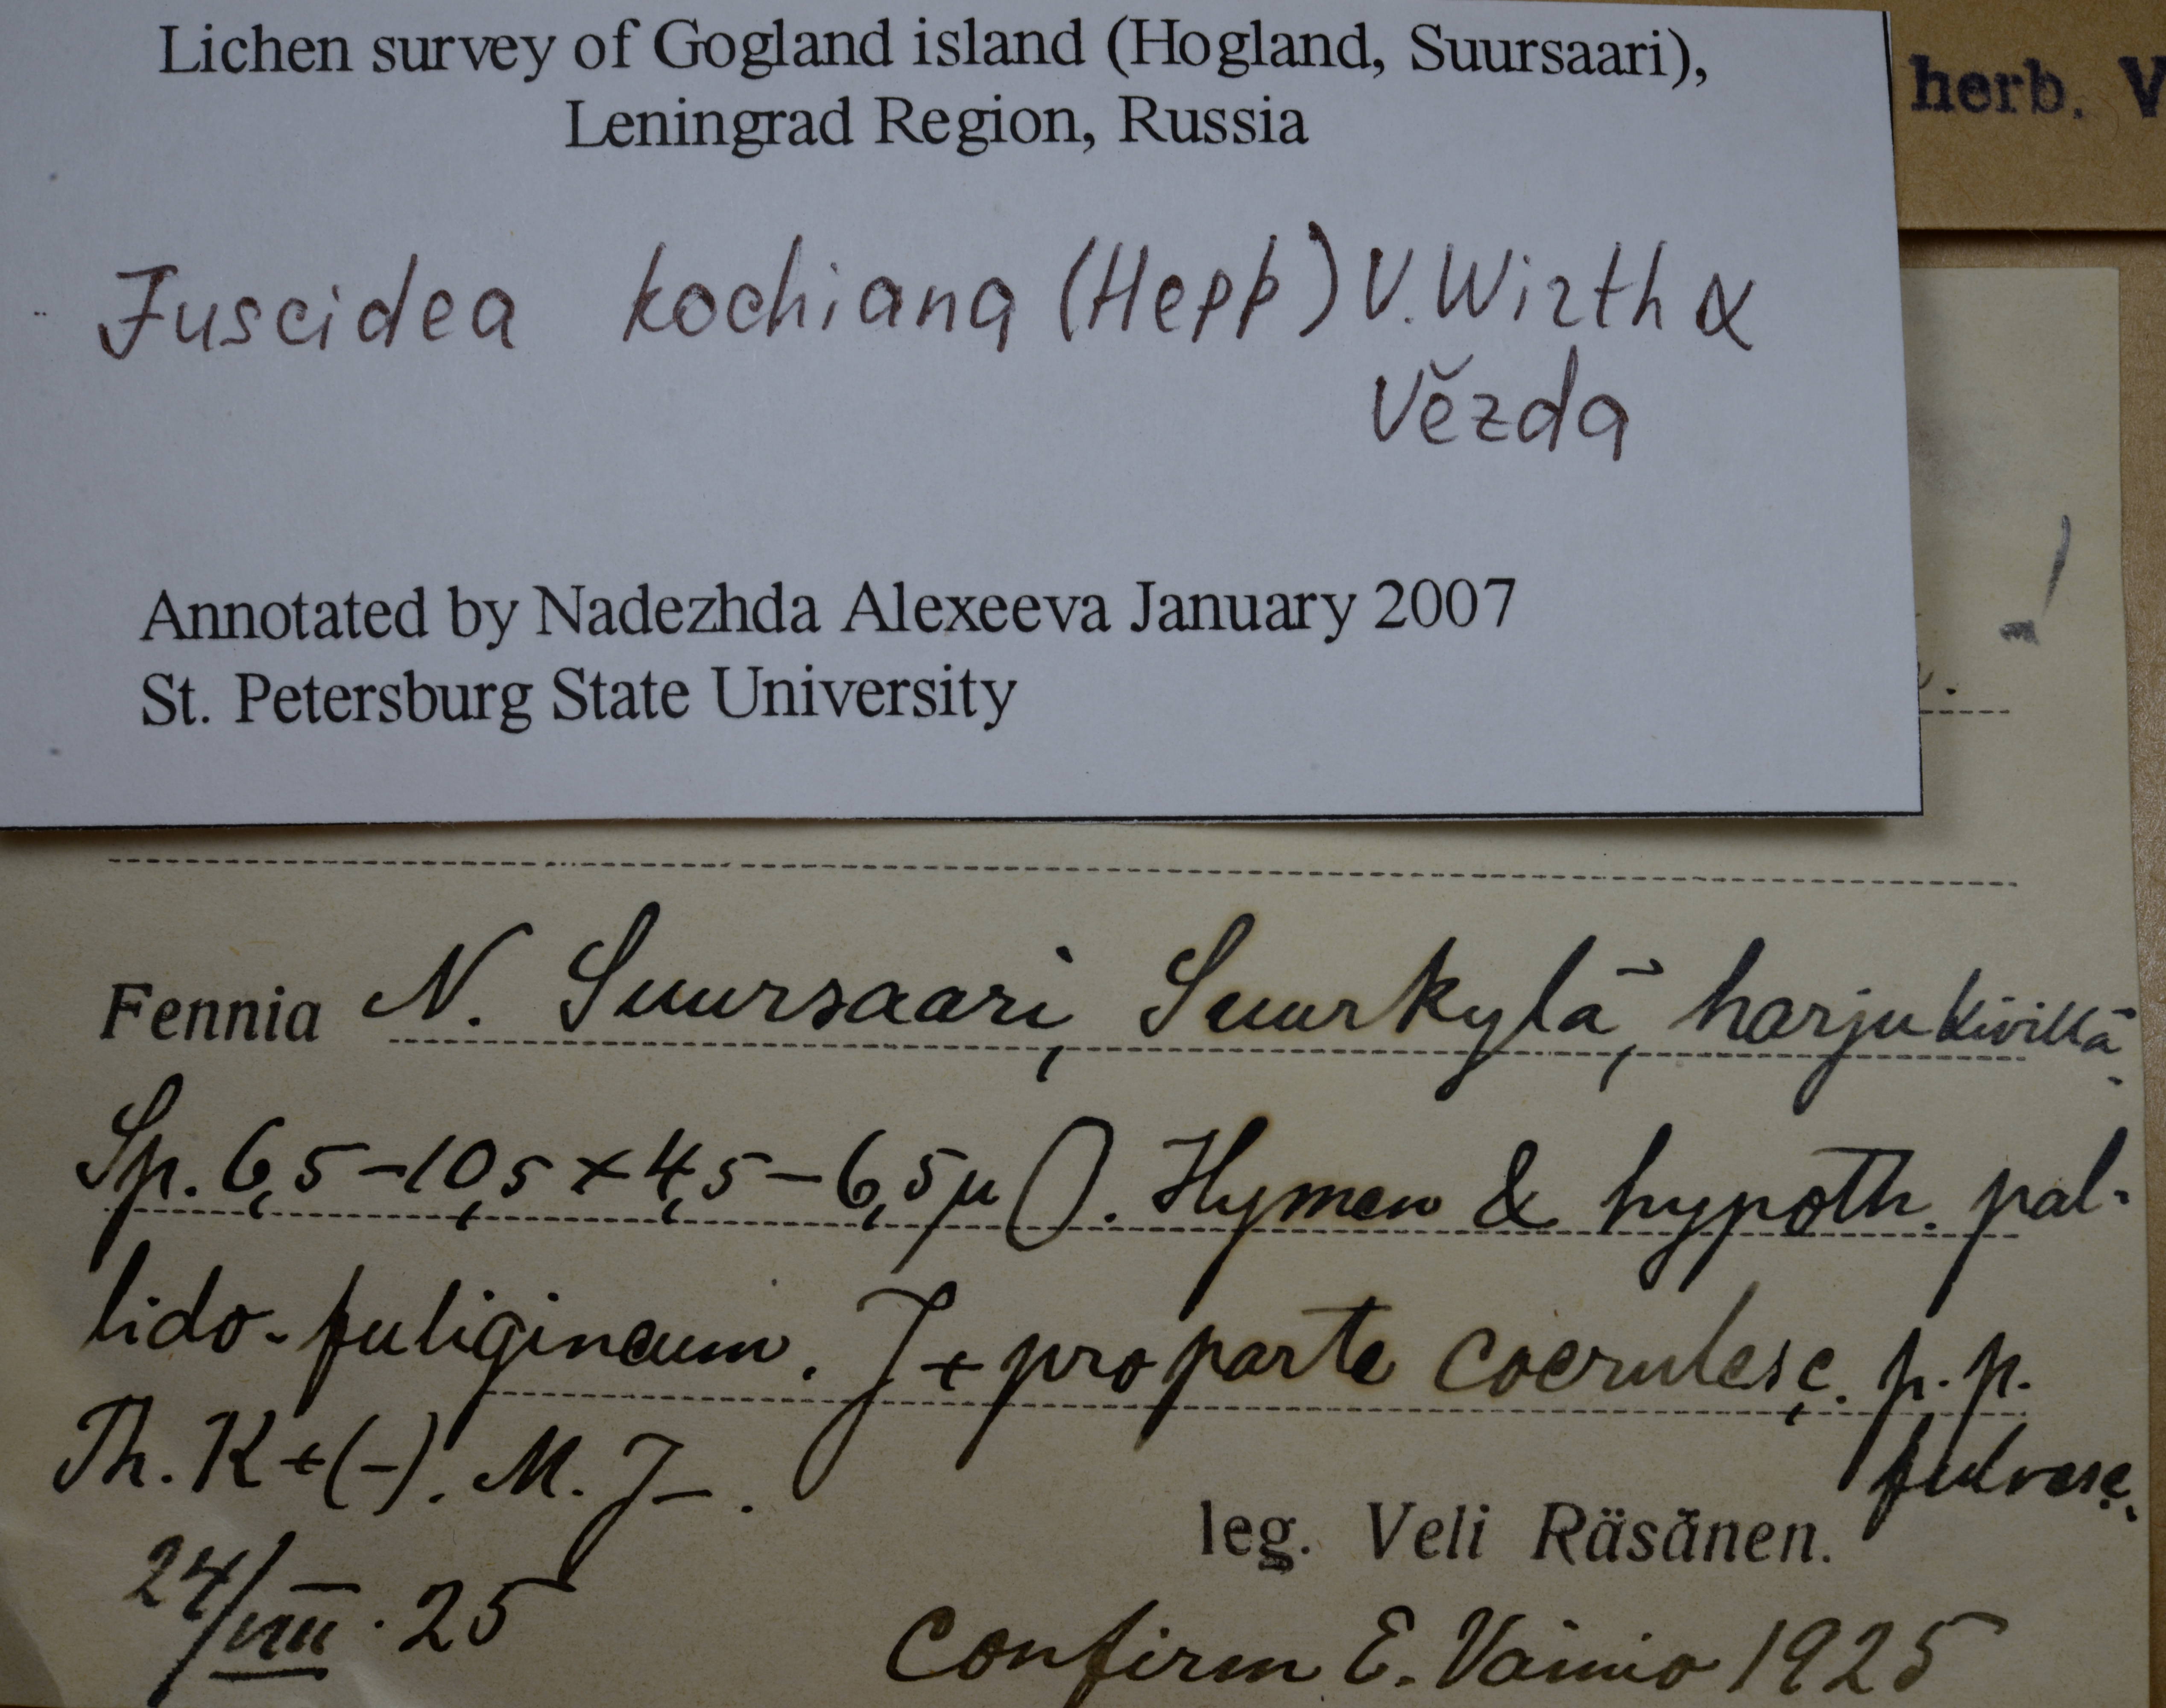 Lichen survey of Gogland island (Hogland, Suursaari),
Leningrad Region, Russia
herb. V
Fuscidea kochiana (Hepp) V. Wirth &
Vězda
Annotated by Nadezhda Alexeeva January 2007
St. Petersburg State University
!
Fennia N. Suursaari, Suurkylä, harjukivillä.
Sp. 6,5-10,5 x 4,5-6,5 µ 0. Hymen & hypoth. pal-
lido-fuligineum. J + pro parte coerulesc. p. p.
fulvesc.
Th. K +(-). M. J-.
leg. Veli Räsänen.
24/VIII. 25
Confirm E. Vainio 1925